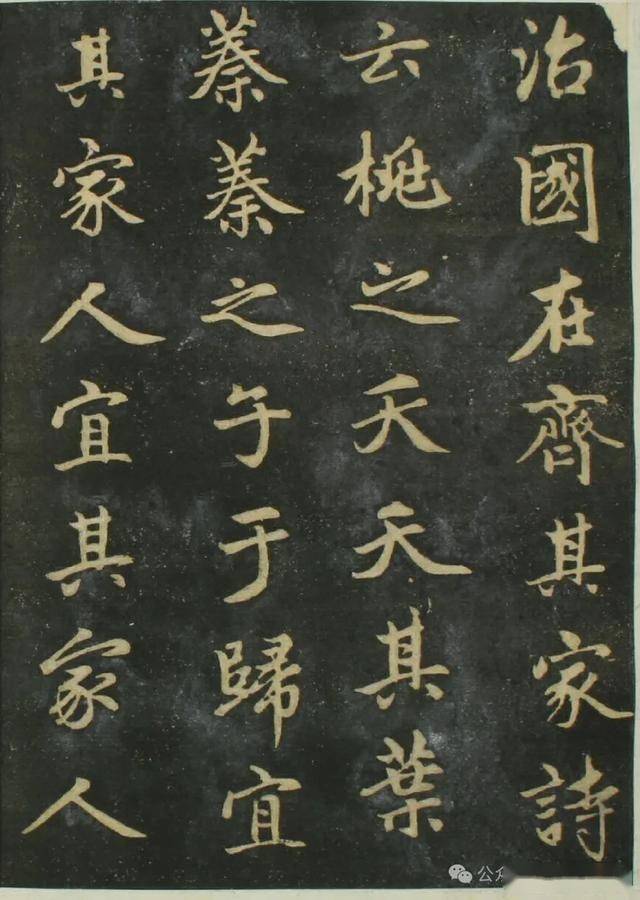 治國在齊其家詩
云桃之夭夭其葉
蓁蓁之子于歸宜
其家人宜其家人
公众